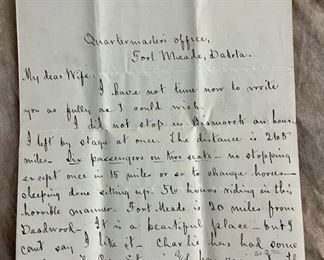 Quartermaster's office,
Fort Meade, Dakota.
My dear Wife:
I have not time now to write
you as fully as I could wish.
I did not stop in Bismarck an hour.
I left by stage at once. The distance is 265
miles. Six passengers on two seats - no stopping
except once in 15 miles or so to change horses -
sleeping done sitting up. 56 hours riding in this
horrible manner. Fort Meade is 20 miles from
Deadwood. It is a beautiful place - but I
can't say I like it. Charlie has had some